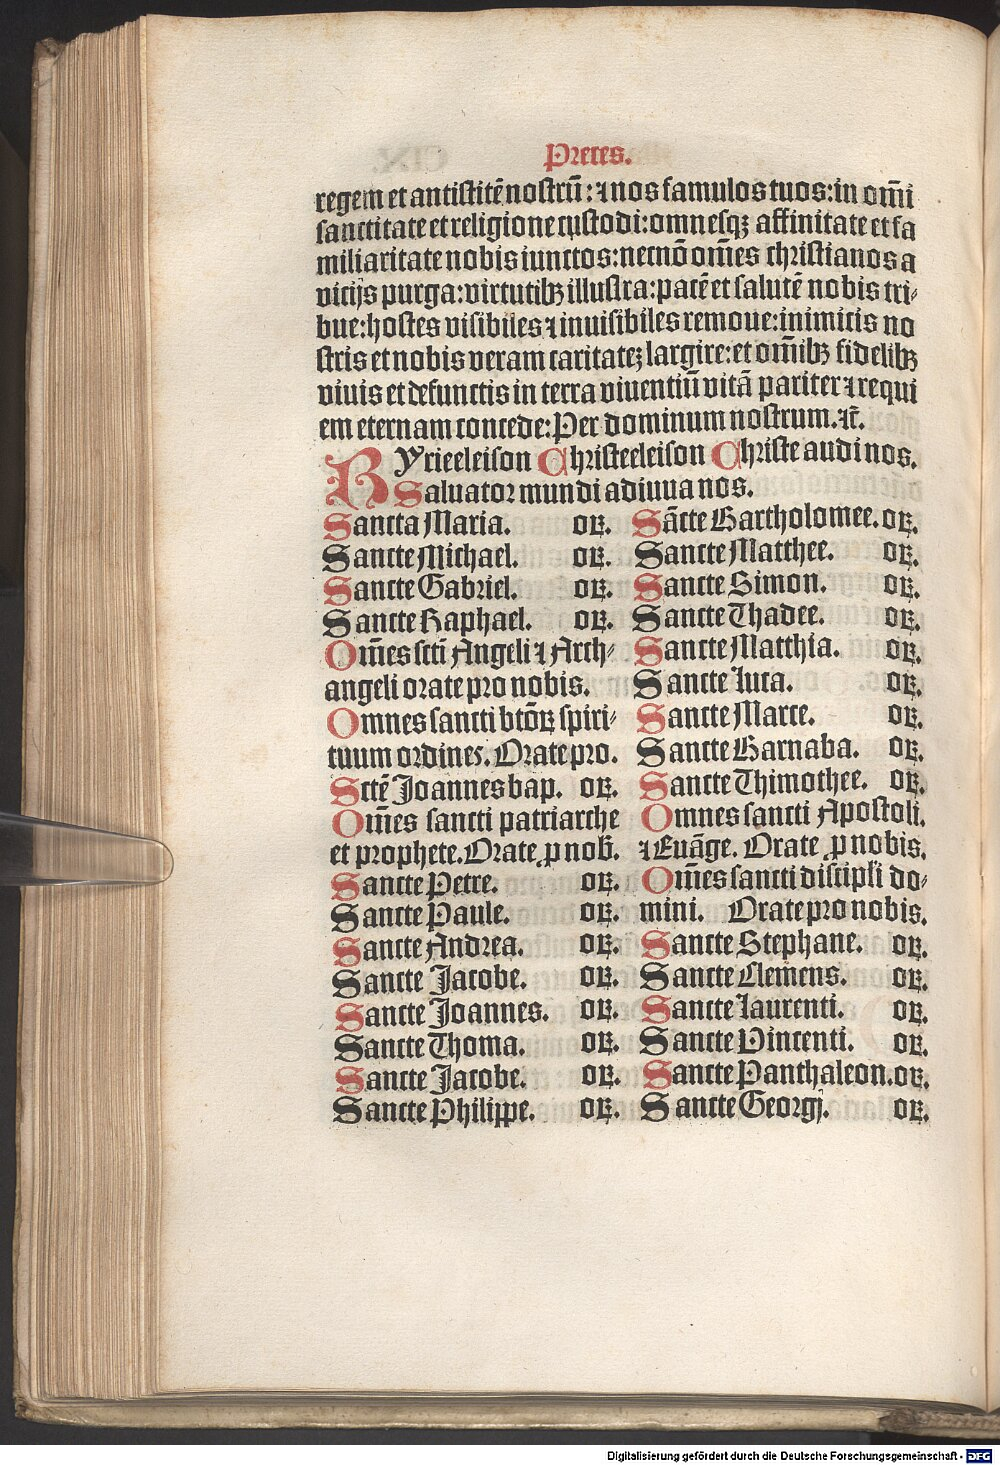 Preces.
regem et antistitē nostrū: ⁊ nos famulos tuos: in om̄i
sanctitate et religione custodi: omnesqꝫ affinitate et fa
miliaritate nobis iunctos: necnō om̄es christianos a
vicijs purga: virtutibꝫ illustra: pacē et salutē nobis tri⸗
bue: hostes visibiles ⁊ inuisibiles remoue: inimicis no
stris et nobis veram caritateꝫ largire: et om̄ibꝫ fidelibꝫ
viuis et defunctis in terra viuentiū vitā pariter ⁊ requi
em eternam concede: Per dominum nostrum. ⁊c̄.
Kyrieeleison Christeeleison Christe audi nos.
Saluator mundi adiuua nos.
Sancta Maria. oꝝ.
Sancte Michael. oꝝ.
Sancte Gabriel. oꝝ.
Sancte Raphael. oꝝ.
Om̄es scti Angeli ⁊ Arch⸗
angeli orate pro nobis.
Omnes sancti btōꝝ spiri⸗
tuum ordines. Orate pro.
Sctē Joannes bap. oꝝ.
Om̄es sancti patriarche
et prophete. Orate ꝓ nob̄.
Sancte Petre. oꝝ.
Sancte Paule. oꝝ.
Sancte Andrea. oꝝ.
Sancte Jacobe. oꝝ.
Sancte Joannes. oꝝ.
Sancte Thoma. oꝝ.
Sancte Jacobe. oꝝ.
Sancte Philippe. oꝝ.
Sācte Bartholomee. oꝝ.
Sancte Matthee. oꝝ.
Sancte Simon. oꝝ.
Sancte Thadee. oꝝ.
Sancte Matthia. oꝝ.
Sancte Luca. oꝝ.
Sancte Marce. oꝝ.
Sancte Barnaba. oꝝ.
Sancte Thimothee. oꝝ.
Omnes sancti Apostoli.
⁊ Euāge. Orate ꝓ nobis.
Om̄es sancti discipli do⸗
mini. Orate pro nobis.
Sancte Stephane. oꝝ.
Sancte Clemens. oꝝ.
Sancte Laurenti. oꝝ.
Sancte Vincenti. oꝝ.
Sancte Panthaleon. oꝝ.
Sancte Georgj. oꝝ.
Digitalisierung gefördert durch die Deutsche Forschungsgemeinschaft - DFG